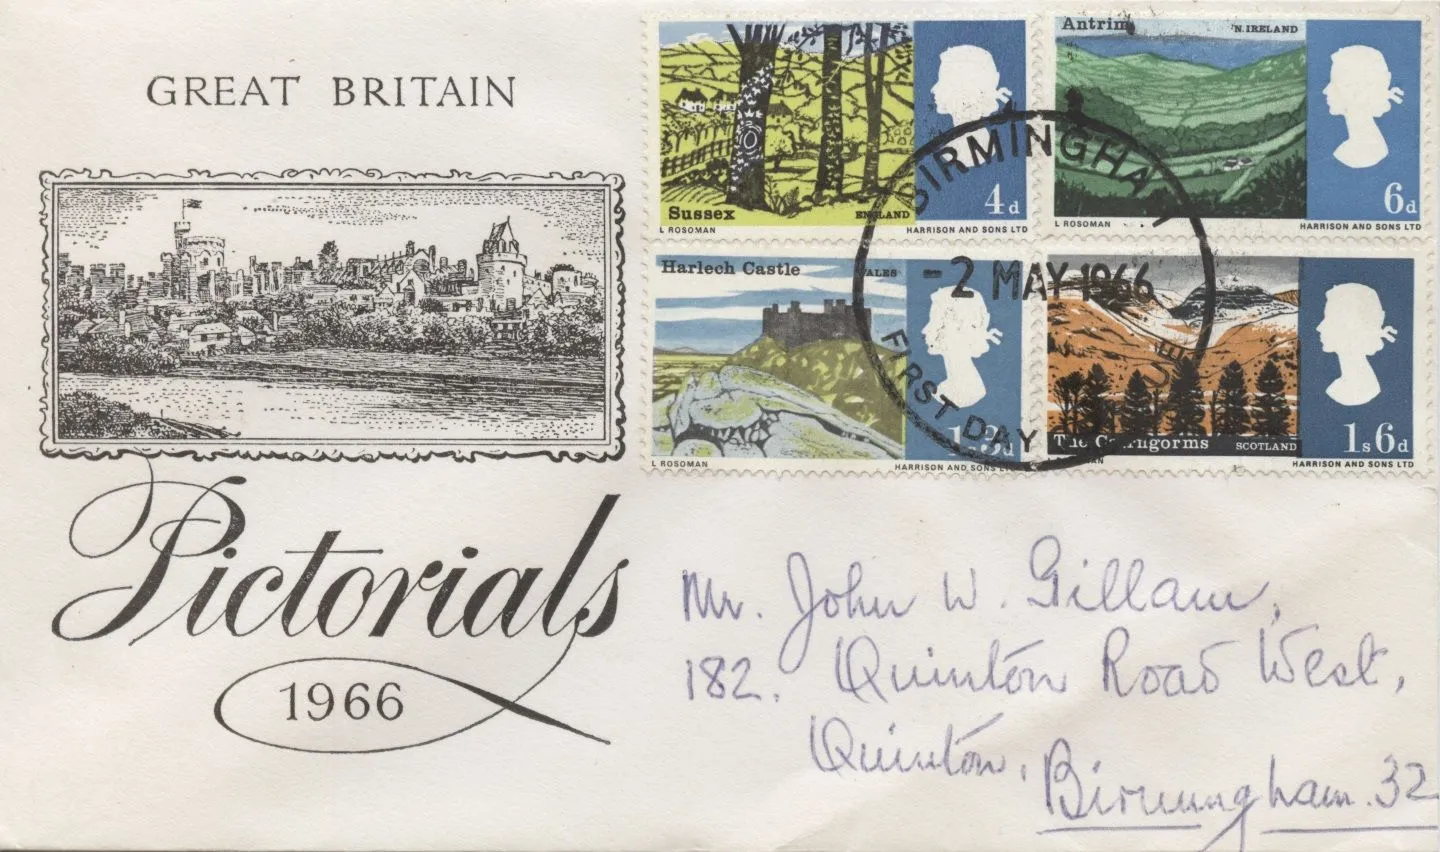 GREAT BRITAIN
Pictorials
1966
Sussex
ENGLAND
4d
L ROSOMAN
HARRISON AND SONS LTD
Antrim
N. IRELAND
6d
L ROSOMAN
HARRISON AND SONS LTD
Harlech Castle
WALES
1s3d
L ROSOMAN
HARRISON AND SONS LTD
The Cairngorms
SCOTLAND
1s6d
HARRISON AND SONS LTD
BIRMINGHAM
-2 MAY 1966
FIRST DAY
Mr. John W. Gillam,
182. Quinton Road West,
Quinton,
Birmingham. 32